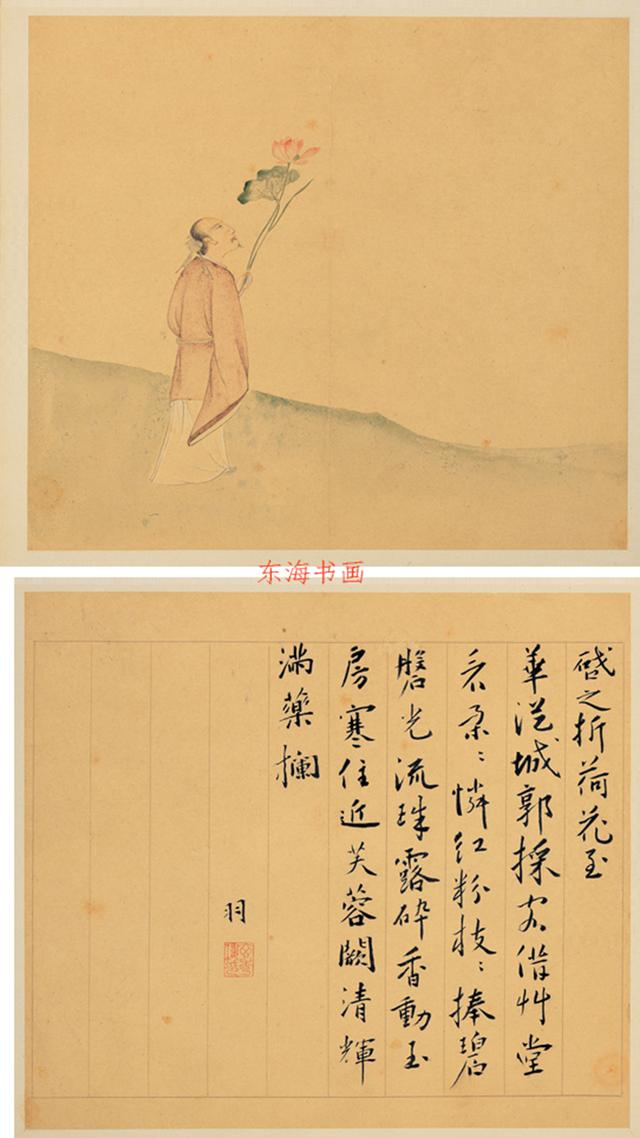 东海书画
啟之折荷花至
華從城郭採借艸堂
看朵〻憐紅粉枝〻捧碧
盤光流珠露碎香動玉
房寒住近芙蓉闕清輝
滿藥欄
羽